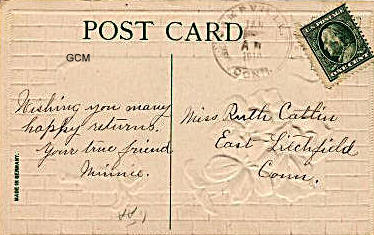 POST CARD
GCM
A M
1910
CONN.
U.S. POSTAGE
ONE CENT
Wishing you many
happy returns.
Your true friend
Minnie.
Miss Ruth Catlin
East Litchfield
Conn.
MADE IN GERMANY.